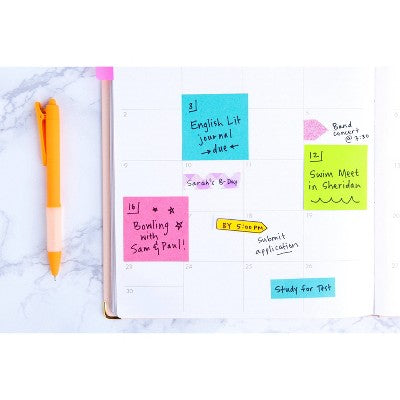 3
English Lit
journal
→due←
Band
concert
@ 7:30
12
Swim Meet
in Sheridan
Sarah's B-Day
16
Bowling
with
Sam & Paul!
BY 5:00 PM
Submit
application
Study for Test
2
9
23
30